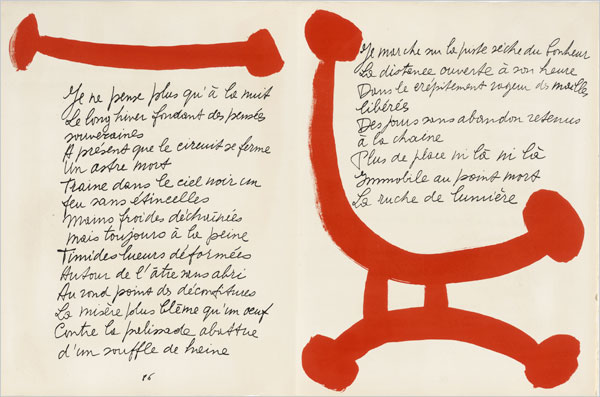 Je ne pense plus qu'à la nuit
Le long hiver fondant des pensées
souveraines
A présent que le circuit se ferme
Un astre mort
Traine dans le ciel noir un
feu sans étincelles
Mains froides déchaînées
mais toujours à la peine
Timides lueurs déformées
Autour de l'âtre sans abri
Au rond point des déconfitures
La misère plus blême qu'un œuf
Contre la palissade abattue
d'un souffle de haine
96
Je marche sur la piste sèche du bonheur
La distance ouverte à son heure
Dans le crépitement rageur des mailles
libérées
Des jours sans abandon retenues
à la chaîne
Plus de place ni là ni là
Immobile au point mort
La ruche de lumière